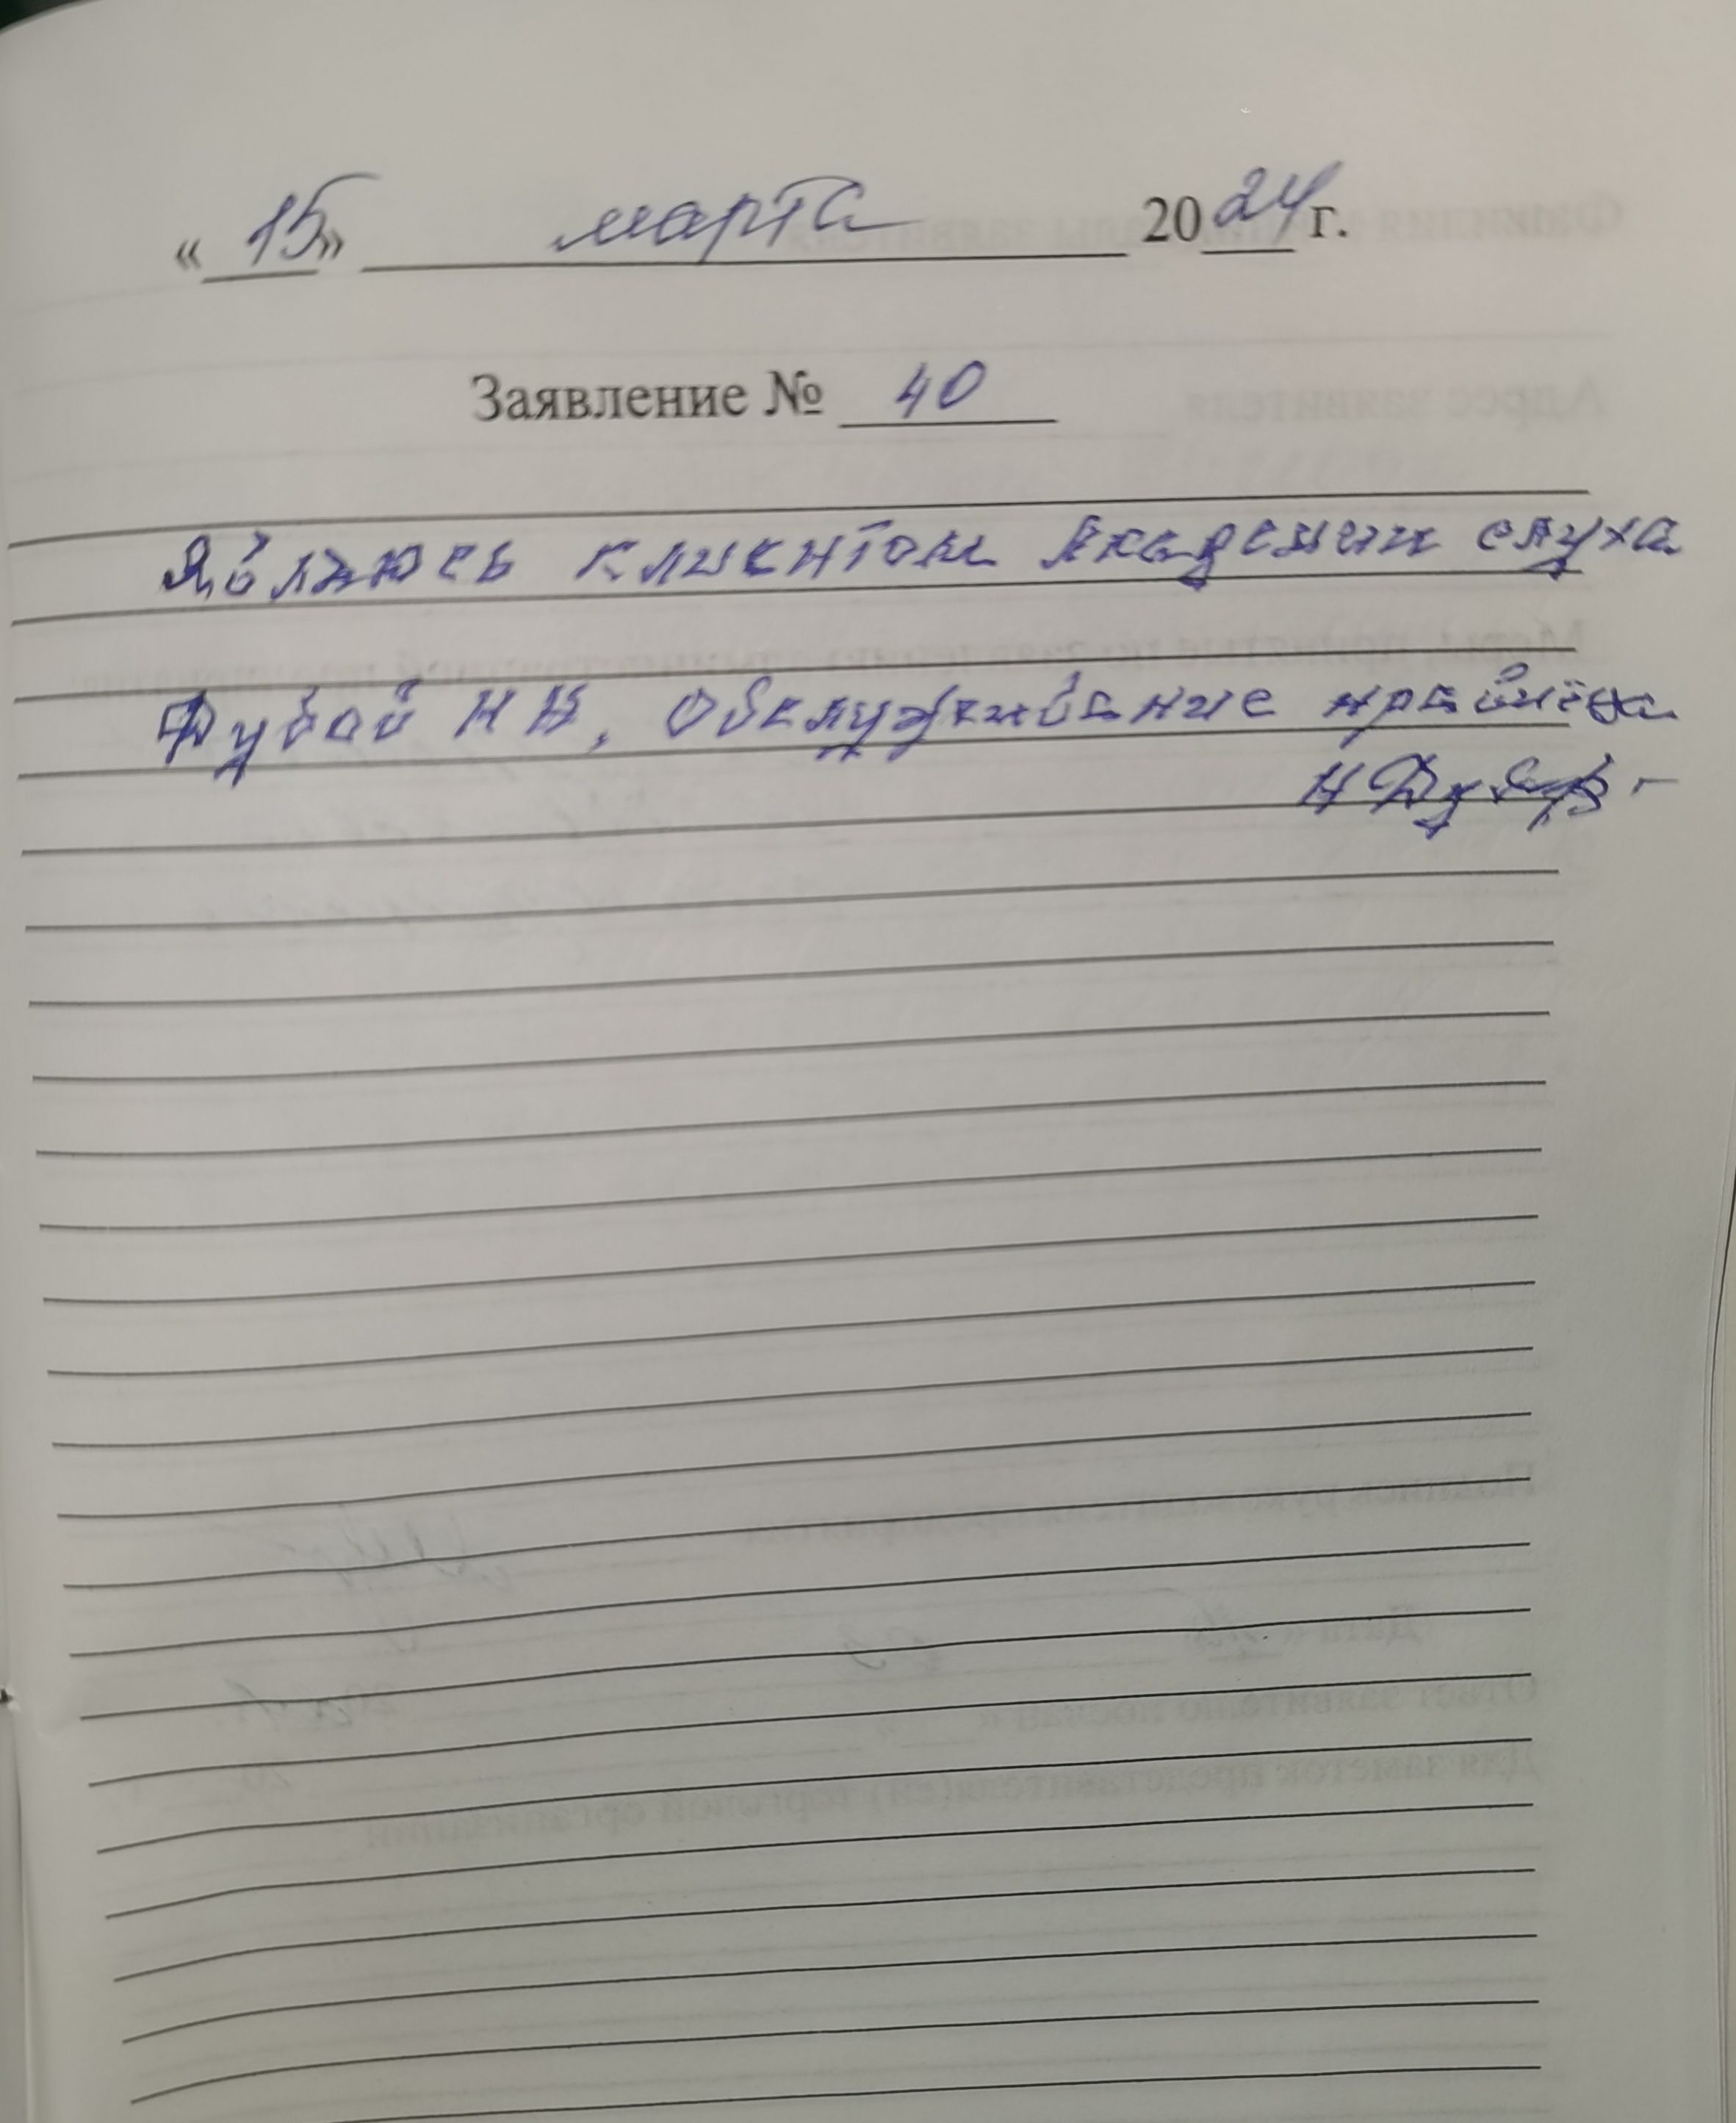 « 15 » марта 2024 г.
Заявление № 40
Являюсь клиентом Академии слуха
Дубой Н В, Обслуживание